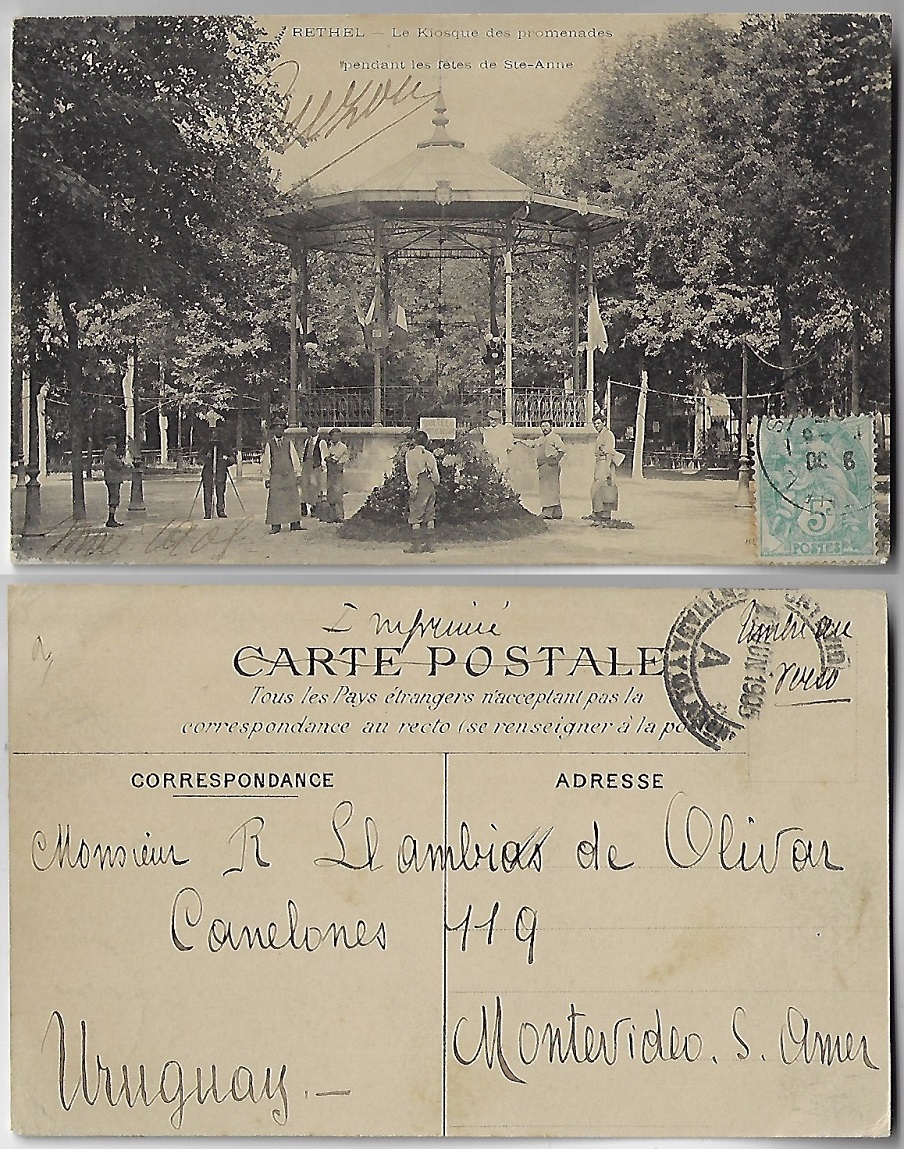 RETHEL — Le Kiosque des promenades
pendant les fêtes de Ste-Anne
5
POSTES
Imprimé
CARTE POSTALE
Tous les Pays étrangers n'acceptant pas la
correspondance au recto (se renseigner à la po
Timbre au
verso
A
JUN 1905
CORRESPONDANCE
ADRESSE
Monsieur R Llambias de Olivar
Canelones 119
Montevideo. S. Amer
Uruguay.—